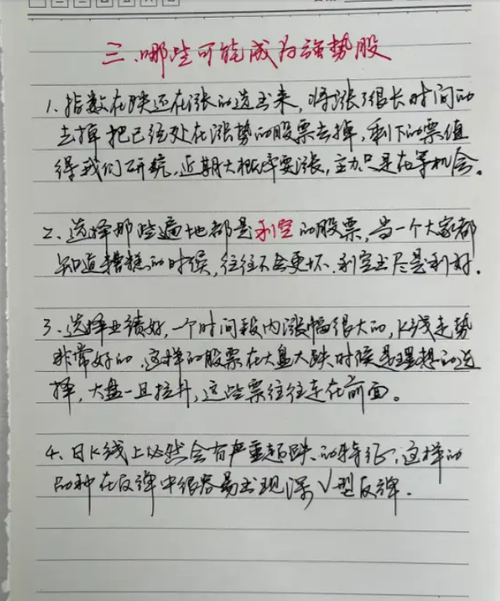 三、哪些可能成为强势股
1、指数在跌还在涨的选出来，将涨了很长时间的
去掉把已经处在涨势的股票去掉，剩下的票值
得我们研究，近期大概率要涨，主力只是在等机会。
2、选择那些遍地都是利空的股票，当一个大家都
知道糟糕的时候，往往不会更坏，利空出尽是利好。
3、选择业绩好，一个时间段内涨幅很大的，K线走势
非常好的，这样的股票在大盘大跌时候是理想的选
择，大盘一旦拉升，这些票往往走在前面。
4、日K线上必然会有严重超跌的特征，这样的
品种在反弹中很容易出现深V型反弹.